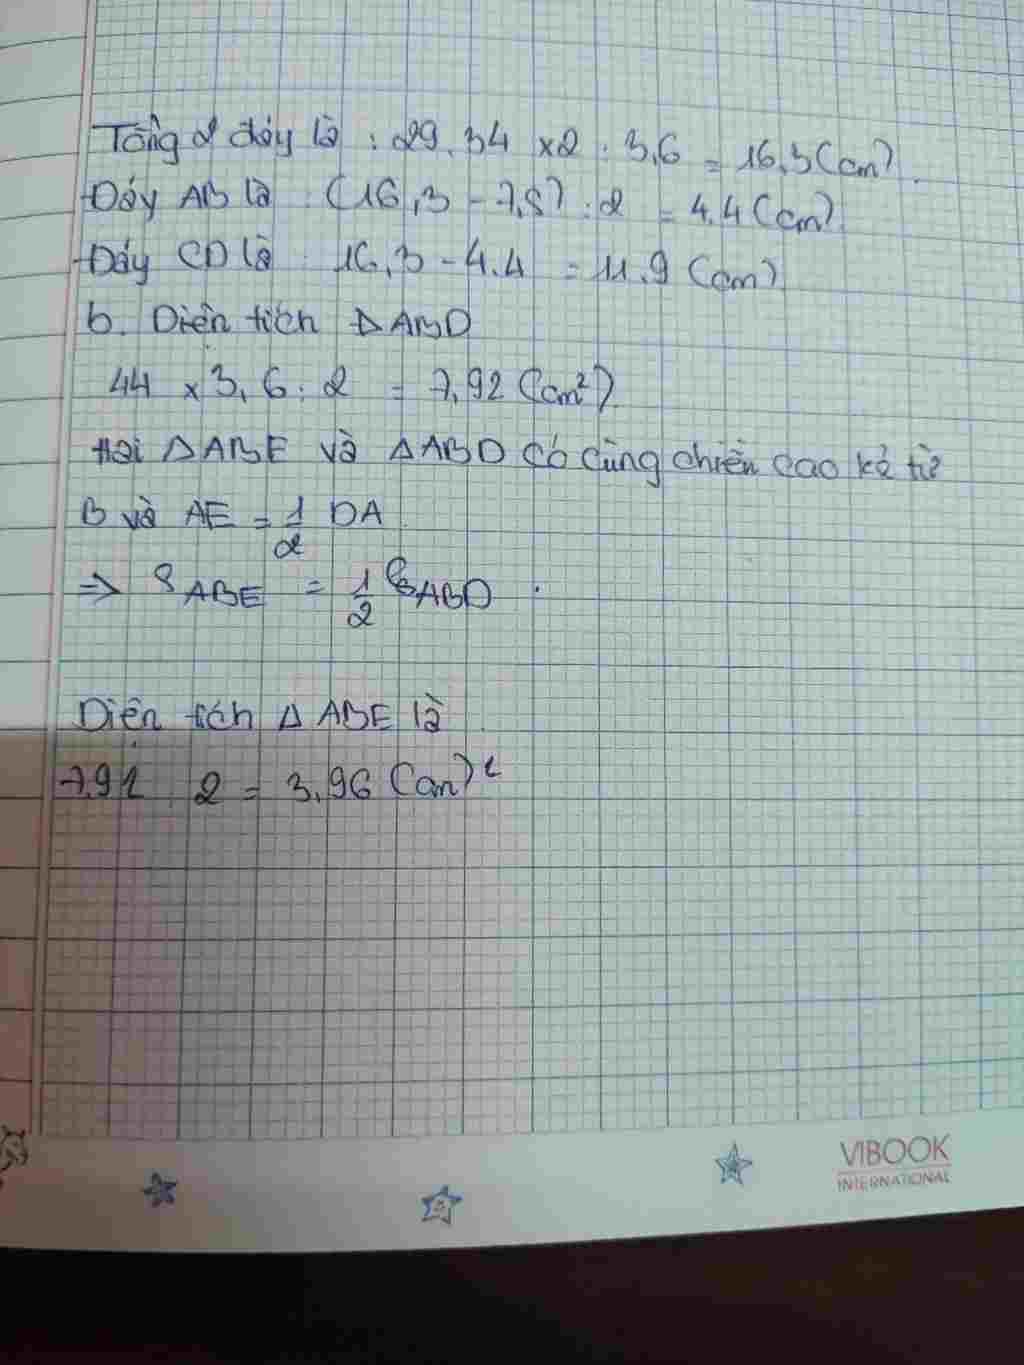 Tổng 2 đáy là : 29.34 x2 : 3,6 = 16,3 (cm).
Đáy AB là : (16,3 - 7,5) : 2 = 4.4 (cm).
Đáy CD là : 16,3 - 4.4 = 11.9 (cm)
b. Diện tích ΔABD
44 x 3,6 : 2 = 7,92 (cm²).
Hai ΔABE và ΔABD có cùng chiều cao kẻ từ
B và AE = 1/2 DA
=> S ABE = 1/2 S ABD .
Diện tích Δ ABE là
7,92 : 2 = 3,96 (cm)²
VIBOOK
INTERNATIONAL